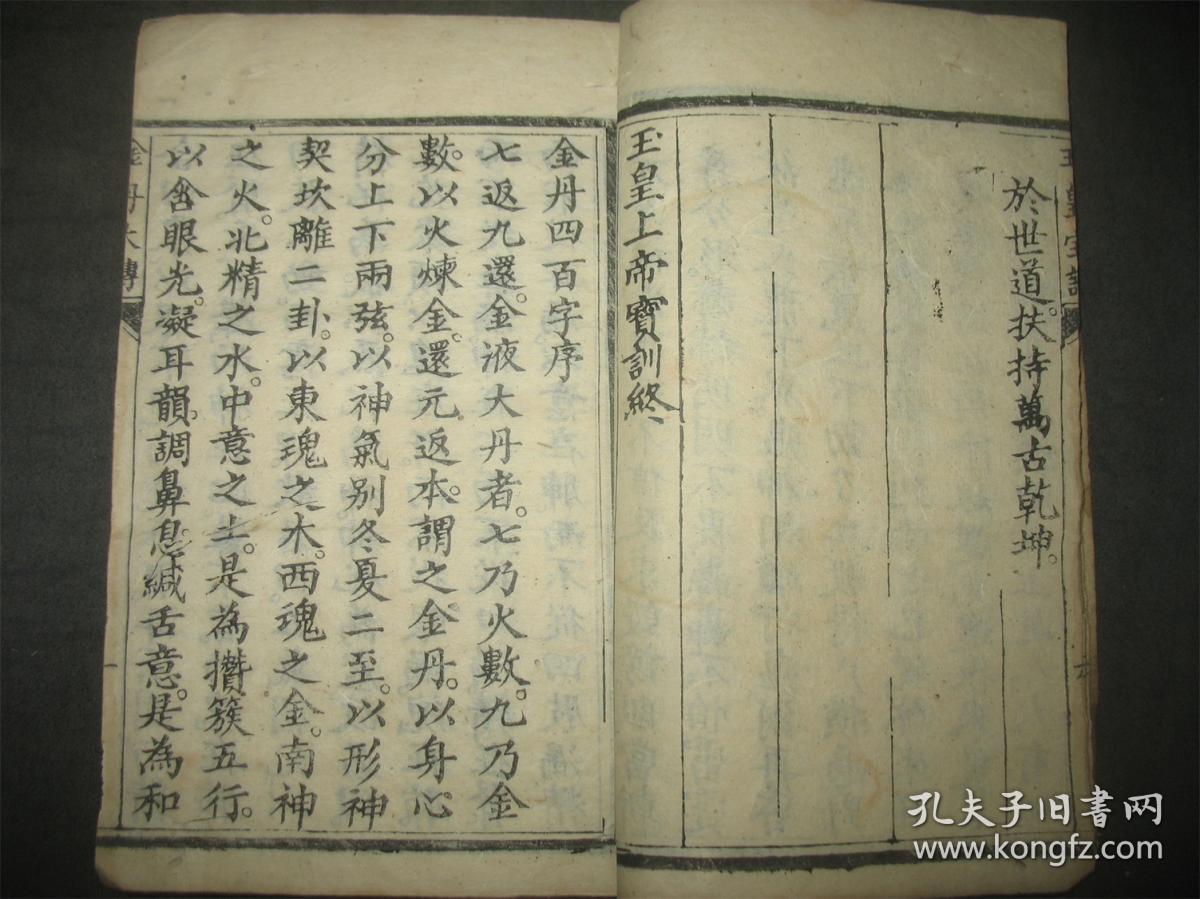 於世道。扶持萬古乾坤。
玉皇上帝寶訓終
金丹四百字序
七返九還。金液大丹者。七乃火數。九乃金
數。以火煉金。還元。返本。謂之金丹。以身心
分上下兩弦。以神氣別冬夏二至。以形神
契坎離二卦。以東魂之木。西魂之金。南神
之火。北精之水。中意之土。是為攢簇五行。
以含眼光。凝耳韻。調鼻息。緘舌意。是為和
金丹大傳
孔夫子旧书网
www.kongfz.com